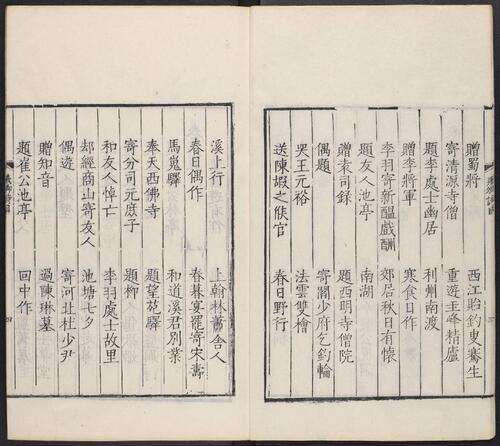 贈蜀將　西江貽釣叟騫生
寄清源寺僧　重遊圭峰精廬
題李處士幽居　利州南渡
贈李將軍　寒食日作
李羽寄新醞戲酬　郊居秋日有懷
題友人池亭　南湖
贈袁司錄　題西明寺僧院
偶題　寄閣少府乞釣輪
哭王元裕　法雲雙檜
送陳嘏之候官　春日野行
溪上行　上翰林蕭舍人
春日偶作　春暮宴罷寄宋壽
馬嵬驛　和道溪君別業
奉天西佛寺　題望苑驛
寄分司元庶子　題柳
和友人悼亡　李羽處士故里
却經商山寄友人　池塘七夕
偶遊　寄河北杜少尹
贈知音　過陳琳墓
題崔公池亭　回中作